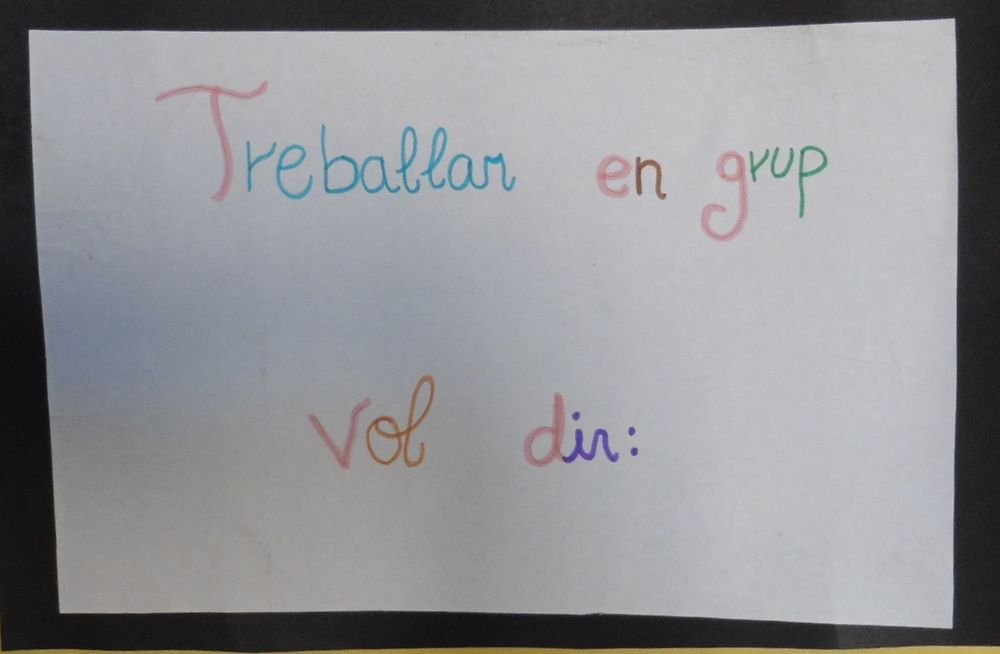 Treballar en grup
Vol dir: